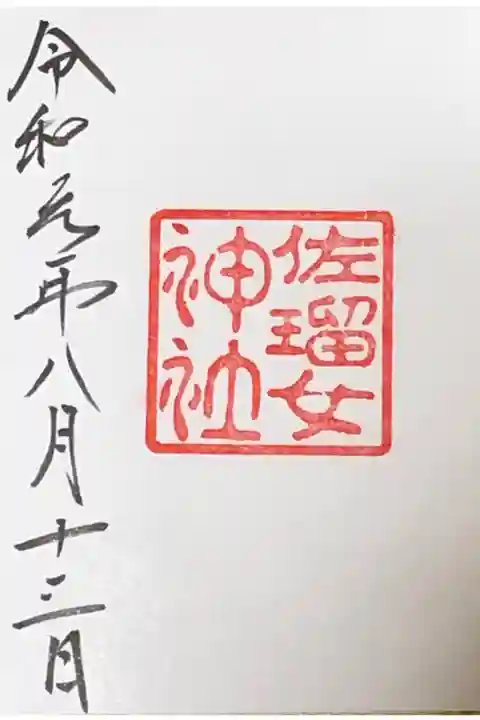 佐瑠女
神社
令和元年八月十三日